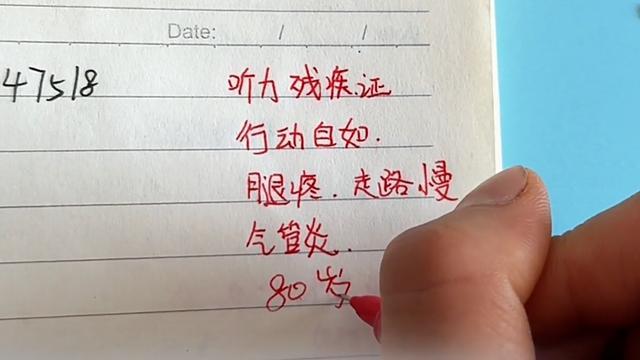 Date: / /
47518
听力残疾证
行动自如.
腿疼.走路慢
气管炎.
80岁